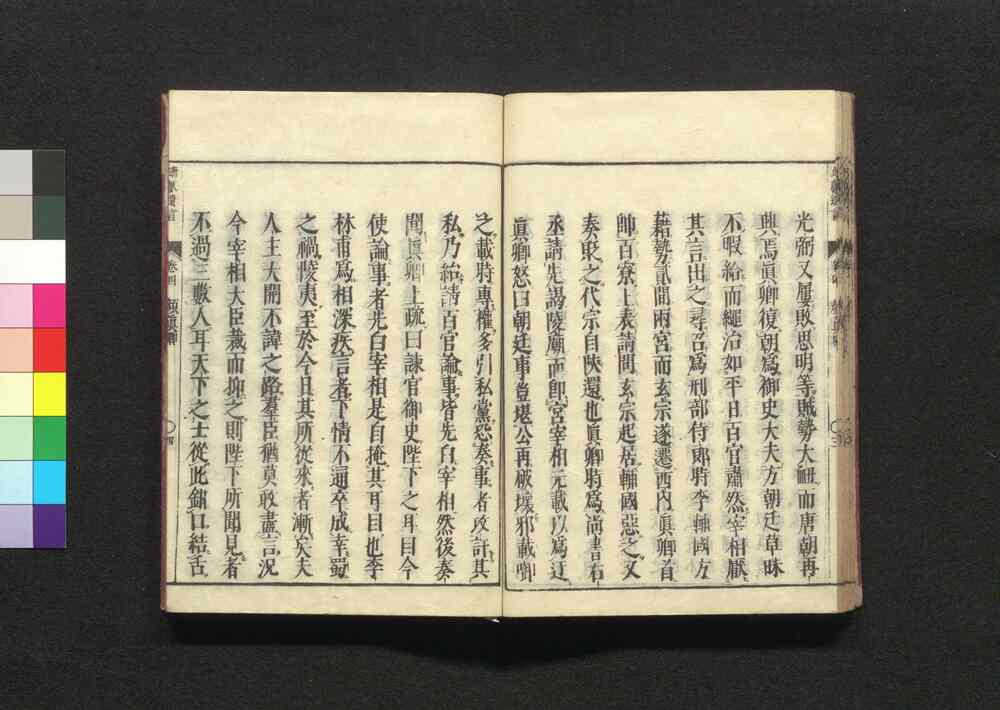 光弼又屢敗思明等賊勢大衄而唐朝再
興焉眞卿復朝爲御史大夫方朝廷草昧
不暇給而繩治如平日百官肅然宰相厭
其言出之尋召爲刑部侍郎時李輔國方
藉勢貳間兩宮而玄宗遂遷西内眞卿首
帥百寮上表請問玄宗起居輔國惡之又
奏貶之代宗自陝還也眞卿時爲尚書右
丞請先謁陵廟而即宮宰相元載以爲迂
眞卿怒曰朝廷事豈堪公再破壞邪載啣
之載時專權多引私黨恐奏事者攻訐其
私乃紿請百官論事皆先白宰相然後奏
聞眞卿上疏曰諫官御史陛下之耳目今
使論事者先白宰相是自掩其耳目也李
林甫爲相深疾言者下情不通卒成幸蜀
之禍陵夷至於今日其所從來者漸矣夫
人主大開不諱之路羣臣猶莫敢盡言況
今宰相大臣裁而抑之則陛下所聞見者
不過三數人耳天下之士從此鉗口結舌
靖獻遺言
卷四
顔眞卿
四